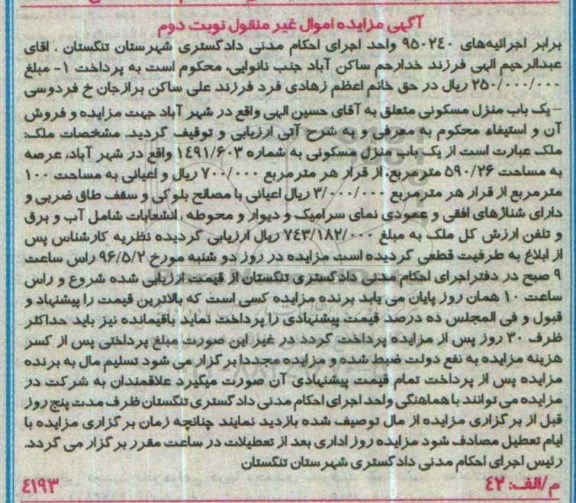 آگهی مزایده اموال غیر منقول نوبت دوم
برابر اجرائیه‌های ۹۵۰۲٤۰ واحد اجرای احکام مدنی دادگستری شهرستان تنگستان . اقای
عبدالرحیم الهی فرزند خدارحم ساکن آباد جنب نانوایی، محکوم است به پرداخت ۱- مبلغ
۲۵۰/۰۰۰/۰۰۰ ریال در حق خانم اعظم زهادی فرد فرزند علی ساکن برازجان خ فردوسی
- یک باب منزل مسکونی متعلق به آقای حسین الهی واقع در شهر آباد جهت مزایده و فروش
آن و استیفاء محکوم به معرفی و به شرح آتی ارزیابی و توقیف گردید. مشخصات ملک:
ملک عبارت است از یک باب منزل مسکونی به شماره ۱٤۹۱/۶۰۳ واقع در شهر آباد، عرصه
به مساحت ۵۹۰/۲۶ مترمربع، از قرار هر مترمربع ۷۰۰/۰۰۰ ریال و اعیانی به مساحت ۱۰۰
مترمربع از قرار هر مترمربع ۳/۰۰۰/۰۰۰ ریال اعیانی با مصالح بلوکی و سقف طاق ضربی و
دارای شناژهای افقی و عمودی نمای سرامیک و دیوار و محوطه ، انشعابات شامل آب و برق
و تلفن ارزش کل ملک به مبلغ ۷٤۳/۱۸۲/۰۰۰ ریال ارزیابی گردیده نظریه کارشناس پس
از ابلاغ به طرفیت قطعی گردیده است مزایده در روز دو شنبه مورخ ۹۶/۵/۲ راس ساعت
۹ صبح در دفتر اجرای احکام مدنی دادگستری تنگستان از قیمت ارزیابی شده شروع و راس
ساعت ۱۰ همان روز پایان می یابد برنده مزایده کسی است که بالاترین قیمت را پیشنهاد و
قبول و فی المجلس ده درصد قیمت پیشنهادی را پرداخت نماید باقیمانده نیز باید حداکثر
ظرف ۳۰ روز پس از مزایده پرداخت گردد در غیر این صورت مبلغ پرداختی پس از کسر
هزینه مزایده به نفع دولت ضبط شده و مزایده مجددا برگزار می شود تسلیم مال به برنده
مزایده پس از پرداخت تمام قیمت پیشنهادی آن صورت میگیرد علاقمندان به شرکت در
مزایده می توانند با هماهنگی واحد اجرای احکام مدنی دادگستری تنگستان ظرف مدت پنج روز
قبل از برگزاری مزایده از مال توصیف شده بازدید نمایند چنانچه زمان برگزاری مزایده با
ایام تعطیل مصادف شود مزایده روز اداری بعد از تعطیلات در ساعت مقرر برگزار می گردد.
رئیس اجرای احکام مدنی دادگستری شهرستان تنگستان
م/الف: ٤۲
٤۱۹۳